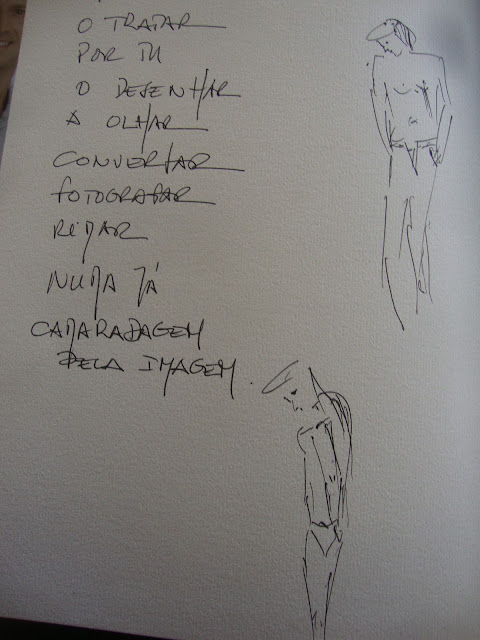 O TRATAR
POR TU
O DESENHAR
A OLHAR
CONVERSAR
FOTOGRAFAR
RIMAR
NUMA JÁ
CAMARADAGEM
PELA IMAGEM.